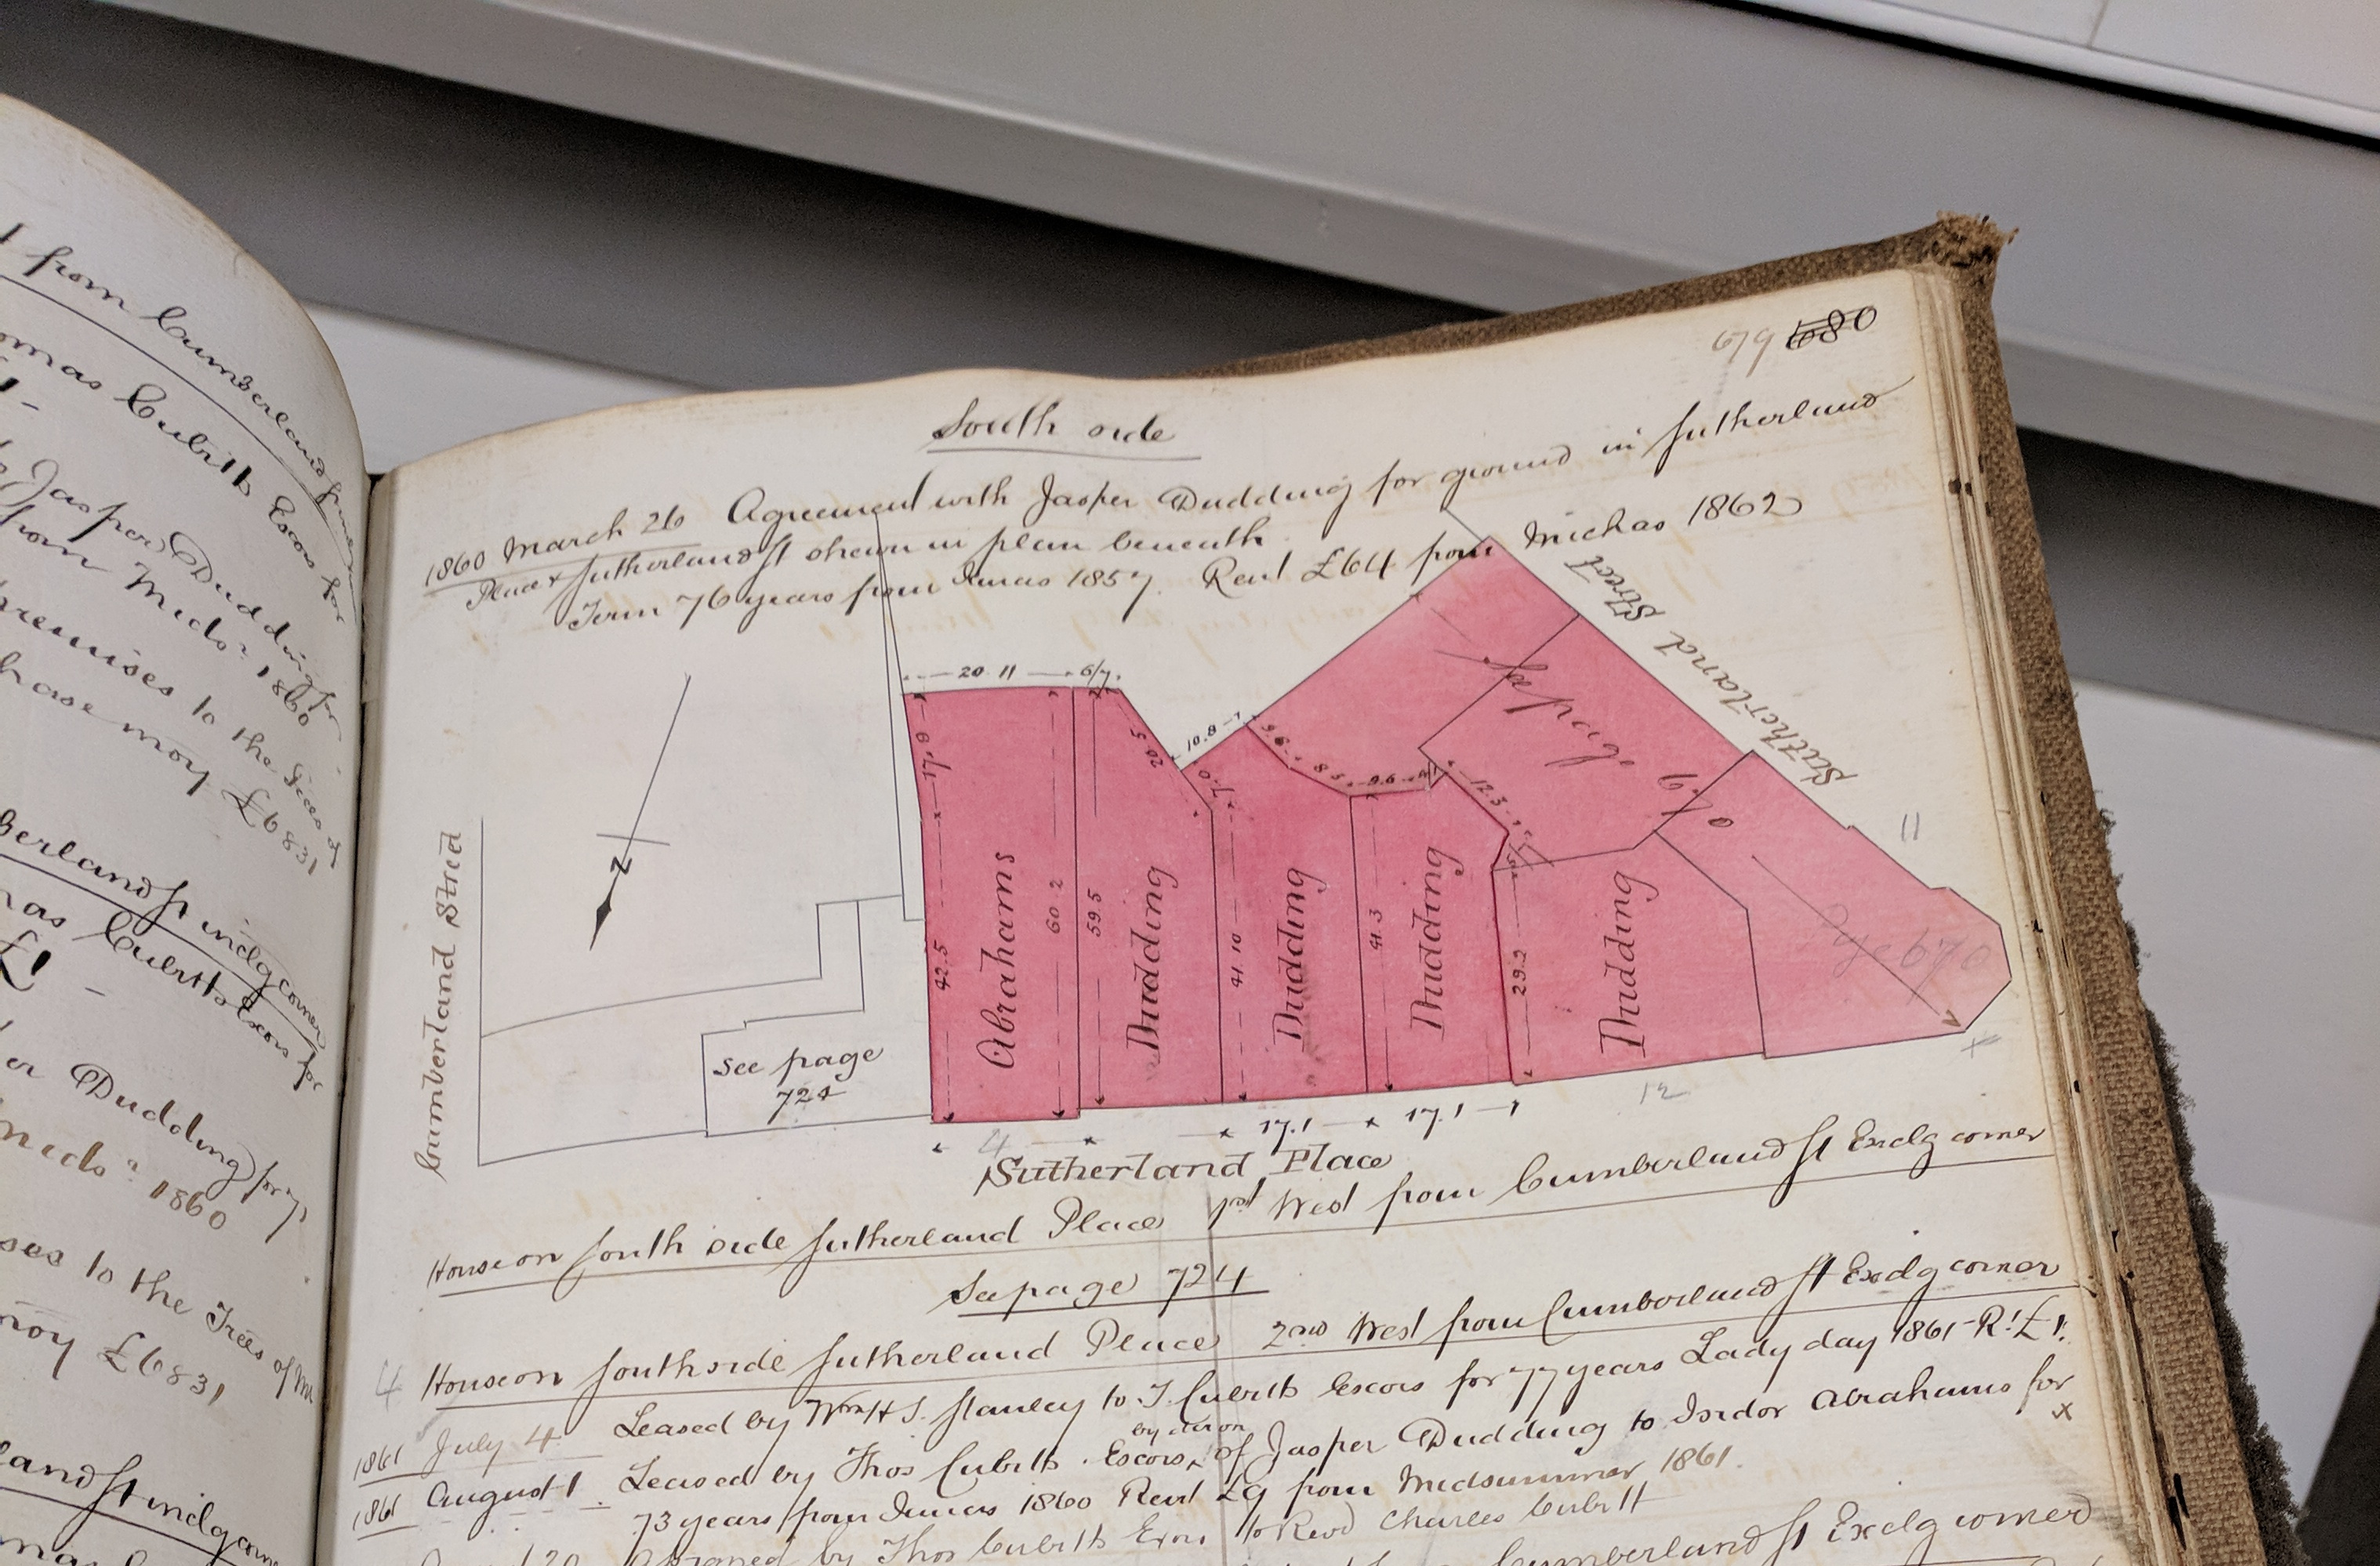 from Cumberland
Thomas Cubitts Exors for
Jasper Dudding for
from Mids.r 1860
premises to the Trees of
£6831
Cumberland St indg corner
Cubitts Exors for
£1 -
Dudding for 7
Mids.r 1860
to the Trees of Mr
£6831
St indg corner
679 680
South side
1860 March 26 Agreement with Jasper Dudding for ground in Sutherland
Place & Sutherland St shewn in plan beneath
Term 76 years from Xmas 1857. Rent £64 from Michas 1862
Sutherland Street
20 11
6/7
17.8
20.5
10.8
7.0
9.6
8.3
9.6
12.3
See page 670
11
Cumberland Street
N
42.5
Abrahams
60.2
59.5
Dudding
41 10
Dudding
41.3
Dudding
29.2
Dudding
670
see page
724
4
17.1
17.1
12
Sutherland Place
House on South side Sutherland Place 1st West from Cumberland St Exclg corner
See page 724
4 House on South side Sutherland Place 2nd West from Cumberland St Exclg corner
1861 July 4 Leased by Wm H S. Stanley to T. Cubitts Exors for 77 years Lady day 1861 - Rt £1.
by diron
1861 August 1 Leased by Thos Cubitts Exors, of Jasper Dudding to Isidor Abrahams for
73 years from Xmas 1860 Rent £9 from Midsummer 1861.
20 Assigned by Thos Cubitts Exors to Revd Charles Cubitt
Cumberland St Exclg corner